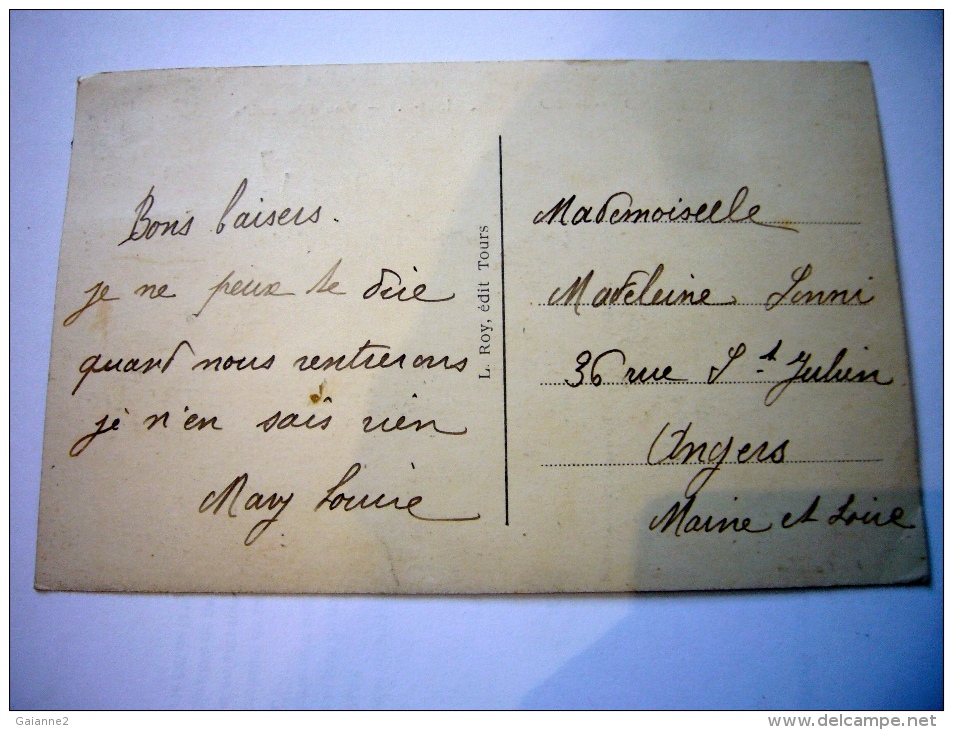 Bons baisers.
je ne peux te dire
quand nous rentrerons
je n'en sais rien
Mary Louise
L. Roy, édit Tours
Mademoiselle
Madeleine
36 rue St Julien
Angers
Maine et Loire
Gaianne2
www.delcampe.net